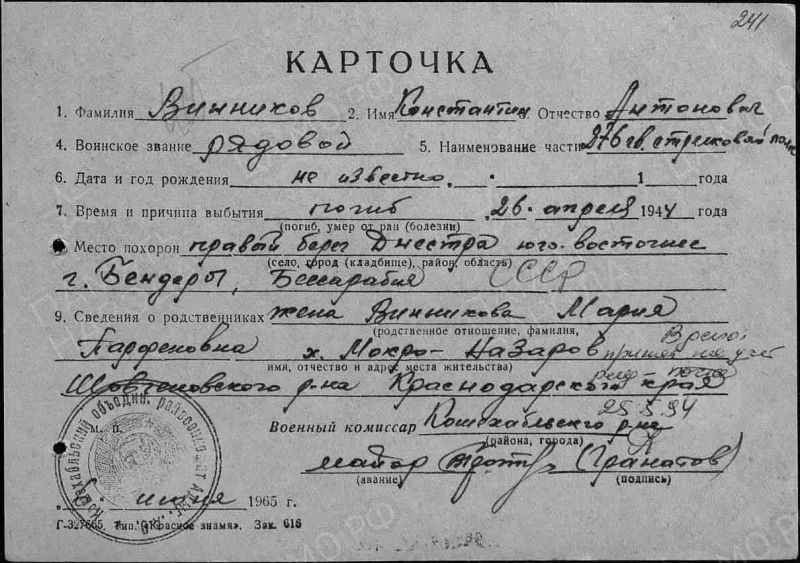 241
КАРТОЧКА
1. Фамилия Винников 2. Имя Константин 3. Отчество Антонович
4. Воинское звание рядовой 5. Наименование части 276 гв. стрелковый полк
6. Дата и год рождения не известно. 1 года
7. Время и причина выбытия погиб 26. апреля 1944 года
(погиб, умер от ран (болезни)
Место похорон правый берег Днестра юго-восточнее
(село, город (кладбище), район, область)
г. Бендеры, Бессарабия СССР
9. Сведения о родственниках жена Винникова Мария
(родственное отношение, фамилия,
Парфеновна х. Мокро-Назаров
имя, отчество и адрес места жительства)
Шовгеновского р-на Краснодарского края
25.5.94
Военный комиссар Кошехабльского р-на
(района, города)
майор (Гранатов)
(звание) (подпись)
М. П.
июня 1965 г.
Г-327665. Тип. «Красное знамя». Зак. 616